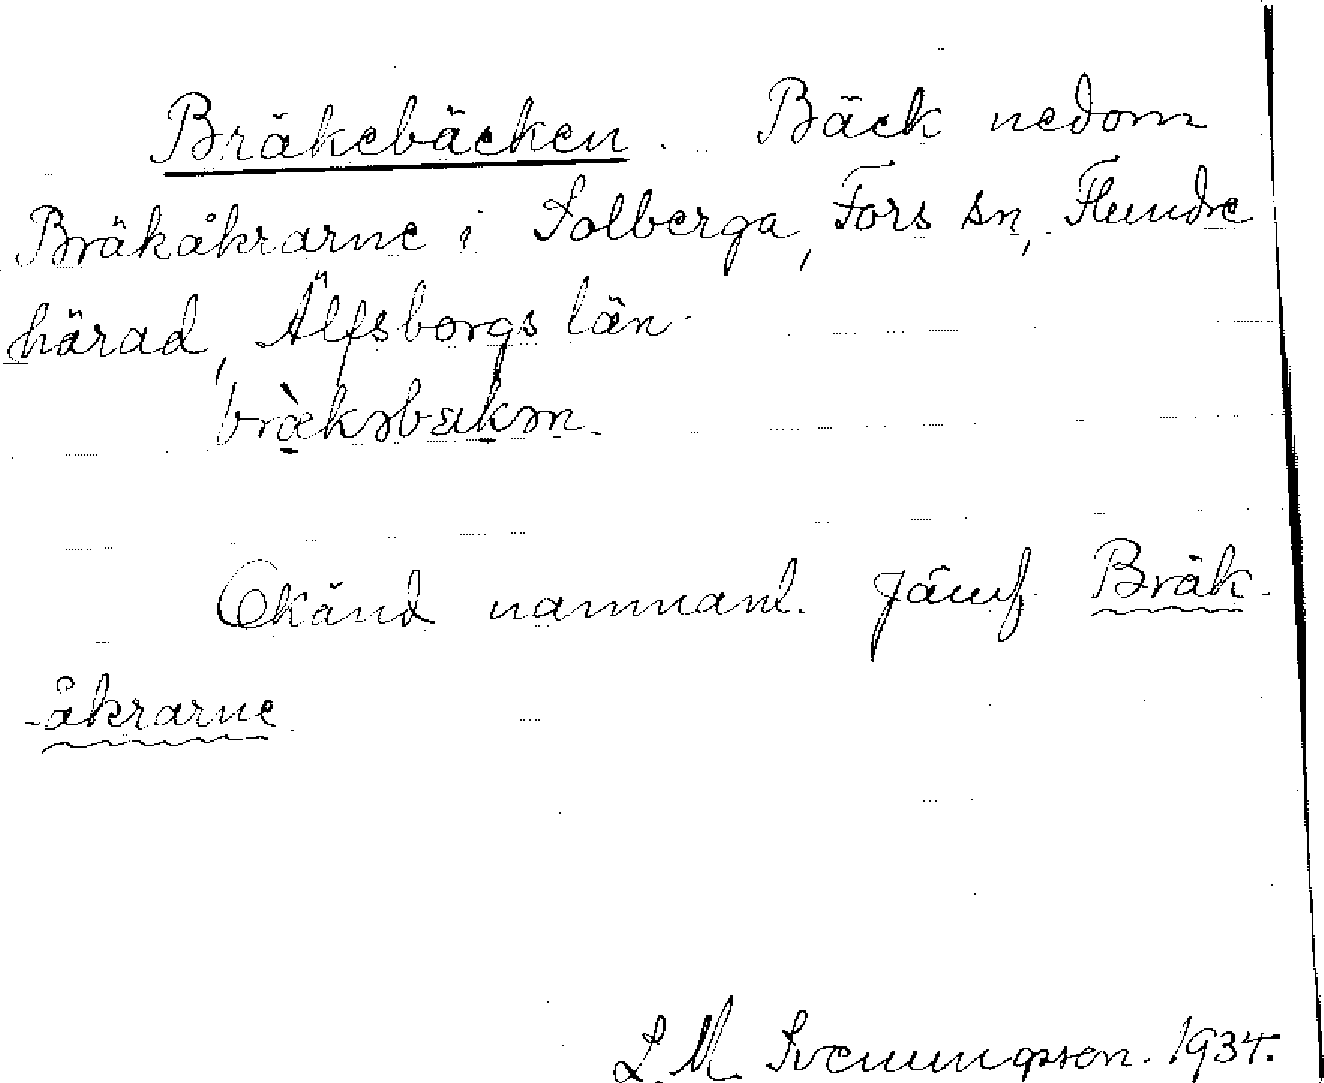 Bräkebäcken. Bäck nedom
Bräkåkrarne i Solberga, Fors sn, Flundre
härad, Älfsborgs län.
Okänd namnanl. Jämf. Bräk-
-åkrarne
L. M. Svenungsson. 1934.